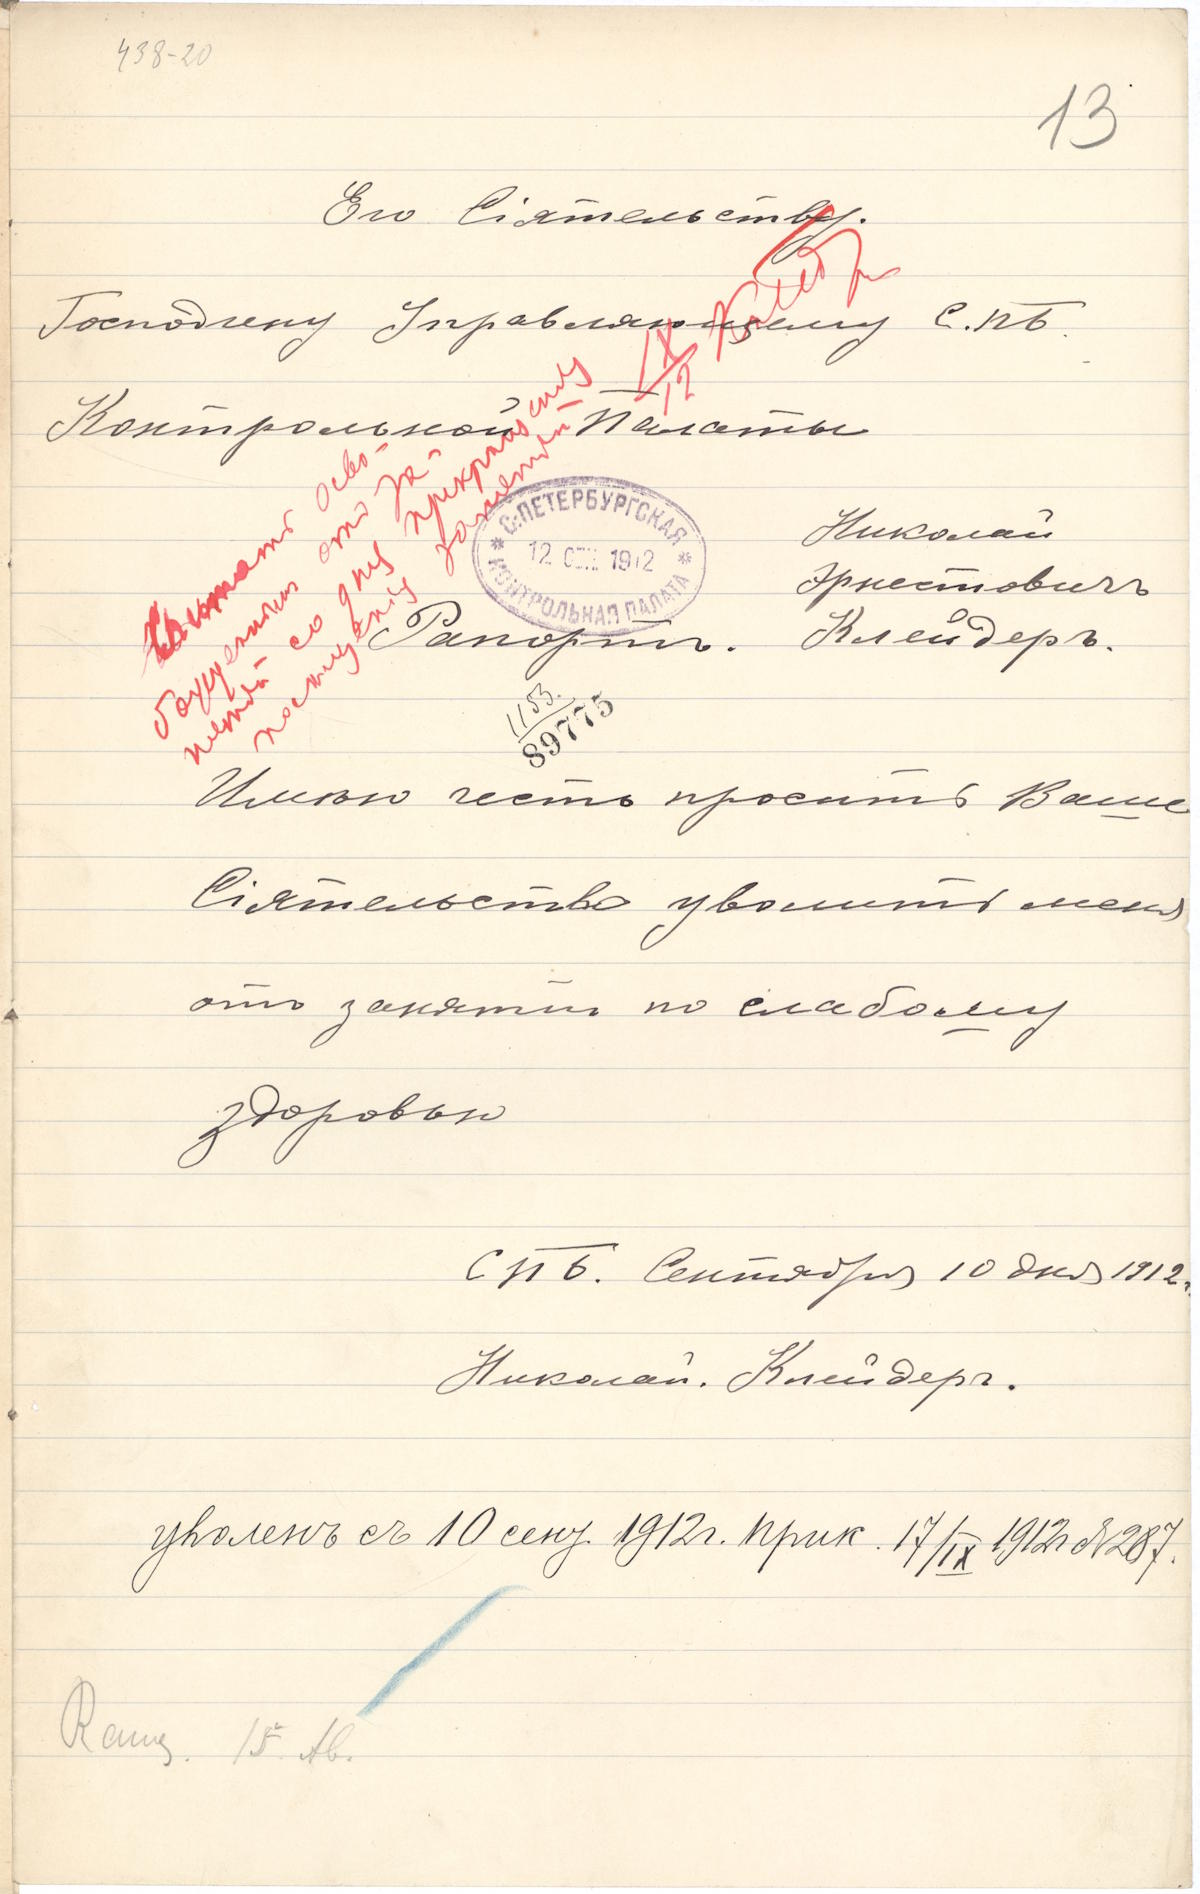 438-20
13
Его Сіятельству.
Господину Управляющему С.ПБ.
Контрольной Палаты
Считать осво-
божденным от за-
нятій со дня прекращенія
посещенія занятій
IX/12
С.ПЕТЕРБУРГСКАЯ
12 СЕН. 1912
КОНТРОЛЬНАЯ ПАЛАТА
Николай
Эрнестович
Клейдеръ.
Рапортъ.
1153.
89775
Имѣю честь просить Ваше
Сіятельство уволить меня
отъ занятій по слабому
здоровью
СПБ. Сентября 10 дня 1912 г.
Николай. Клейдеръ.
уволенъ съ 10 сент. 1912 г. Прик. 17/IX 1912 г. № 287.
15. Ав.